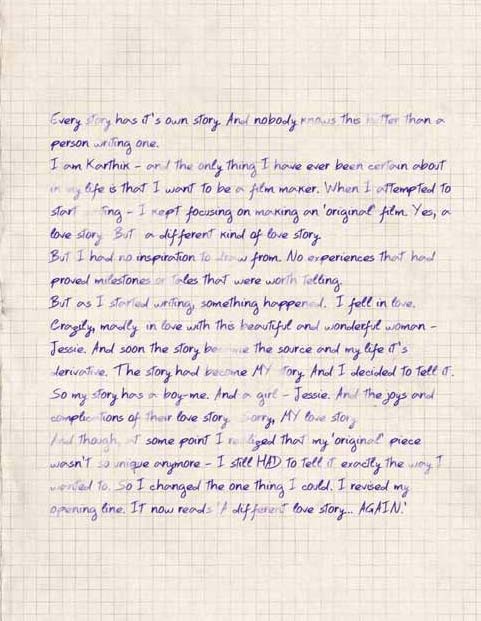 Every story has it's own story. And nobody knows this better than a
person writing one.
I am Karthik - and the only thing I have ever been certain about
in my life is that I want to be a film maker. When I attempted to
start writing - I kept focusing on making an 'original' film. Yes, a
love story. But a different kind of love story.
But I had no inspiration to draw from. No experiences that had
proved milestones or tales that were worth telling.
But as I started writing, something happened. I fell in love.
Crazily, madly in love with this beautiful and wonderful woman -
Jessie. And soon the story became the source and my life it's
derivative. The story had become MY story. And I decided to tell it.
So my story has a boy-me. And a girl - Jessie. And the joys and
complications of their love story. Sorry, MY love story.
And though, at some point I realized that my 'original' piece
wasn't so unique anymore - I still HAD to tell it exactly the way I
wanted to. So I changed the one thing I could. I revised my
opening line. It now reads 'A different love story... AGAIN.'